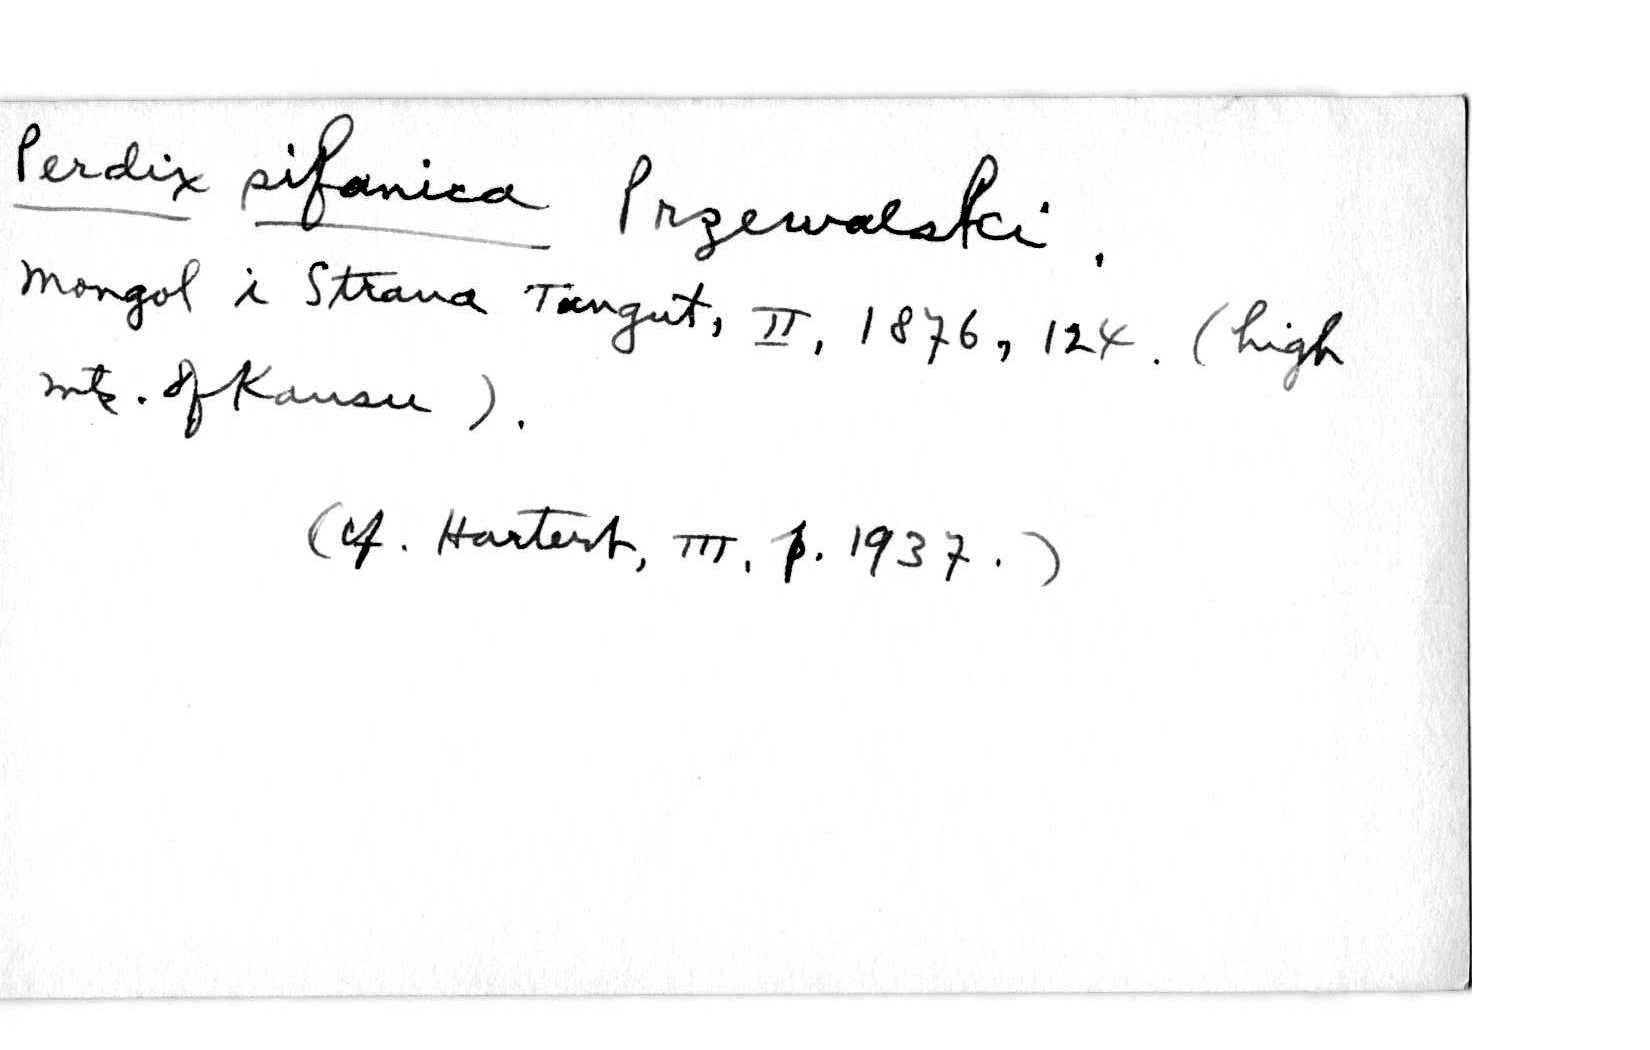 Perdix sifanica Przewalski.
Mongol i Strana Tangut, II, 1876, 124. (high
mts. of Kansu).
(cf. Hartert, III, p. 1937.)